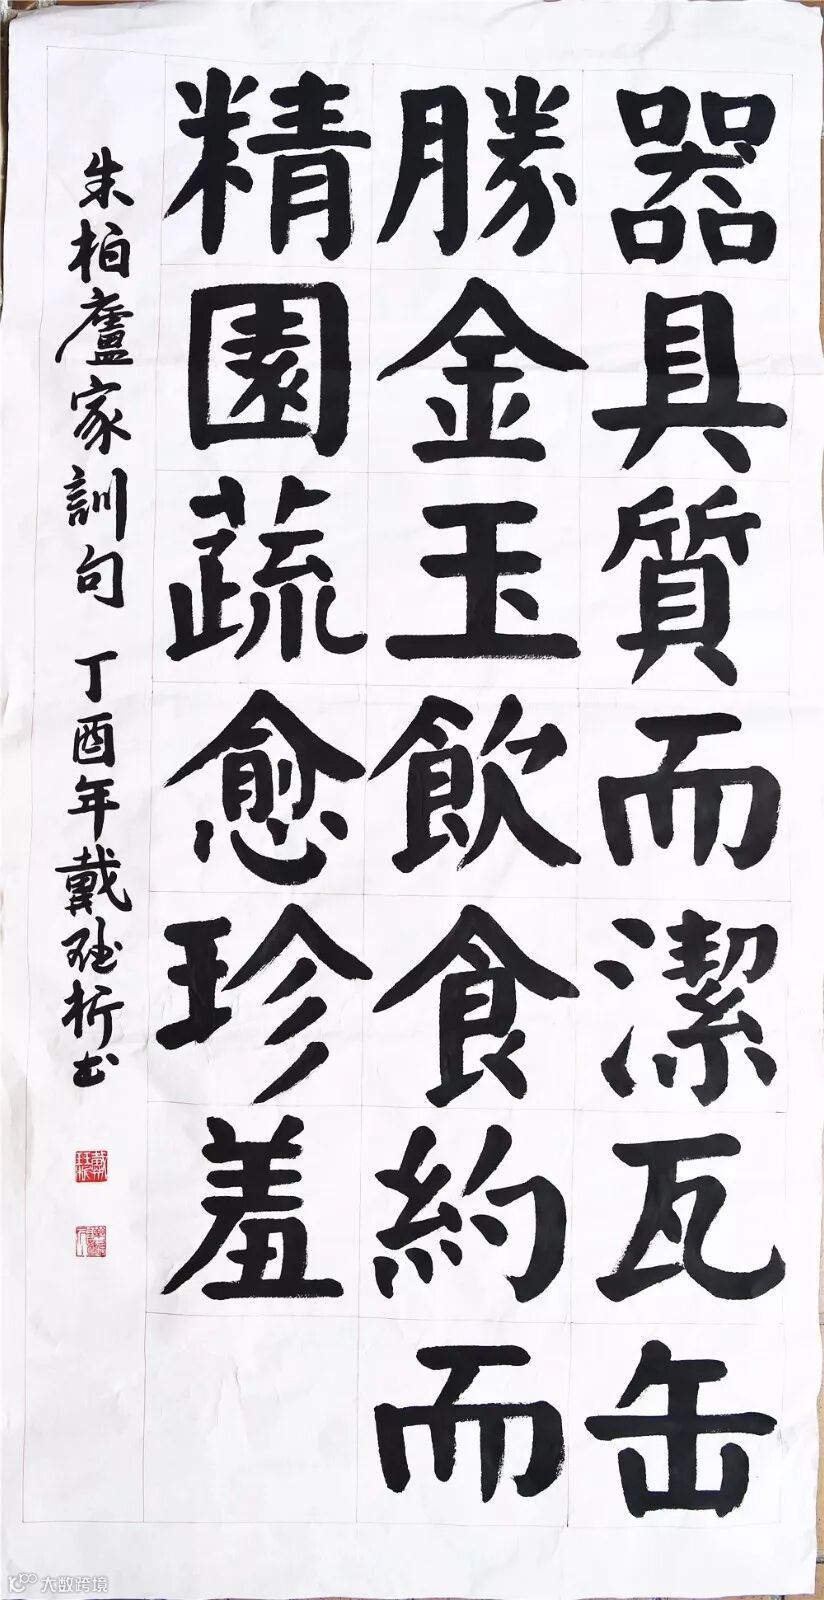 器具質而潔瓦缶
勝金玉飲食約而
精園蔬愈珍羞
朱柏廬家訓句 丁酉年戴砡析书
大数跨境